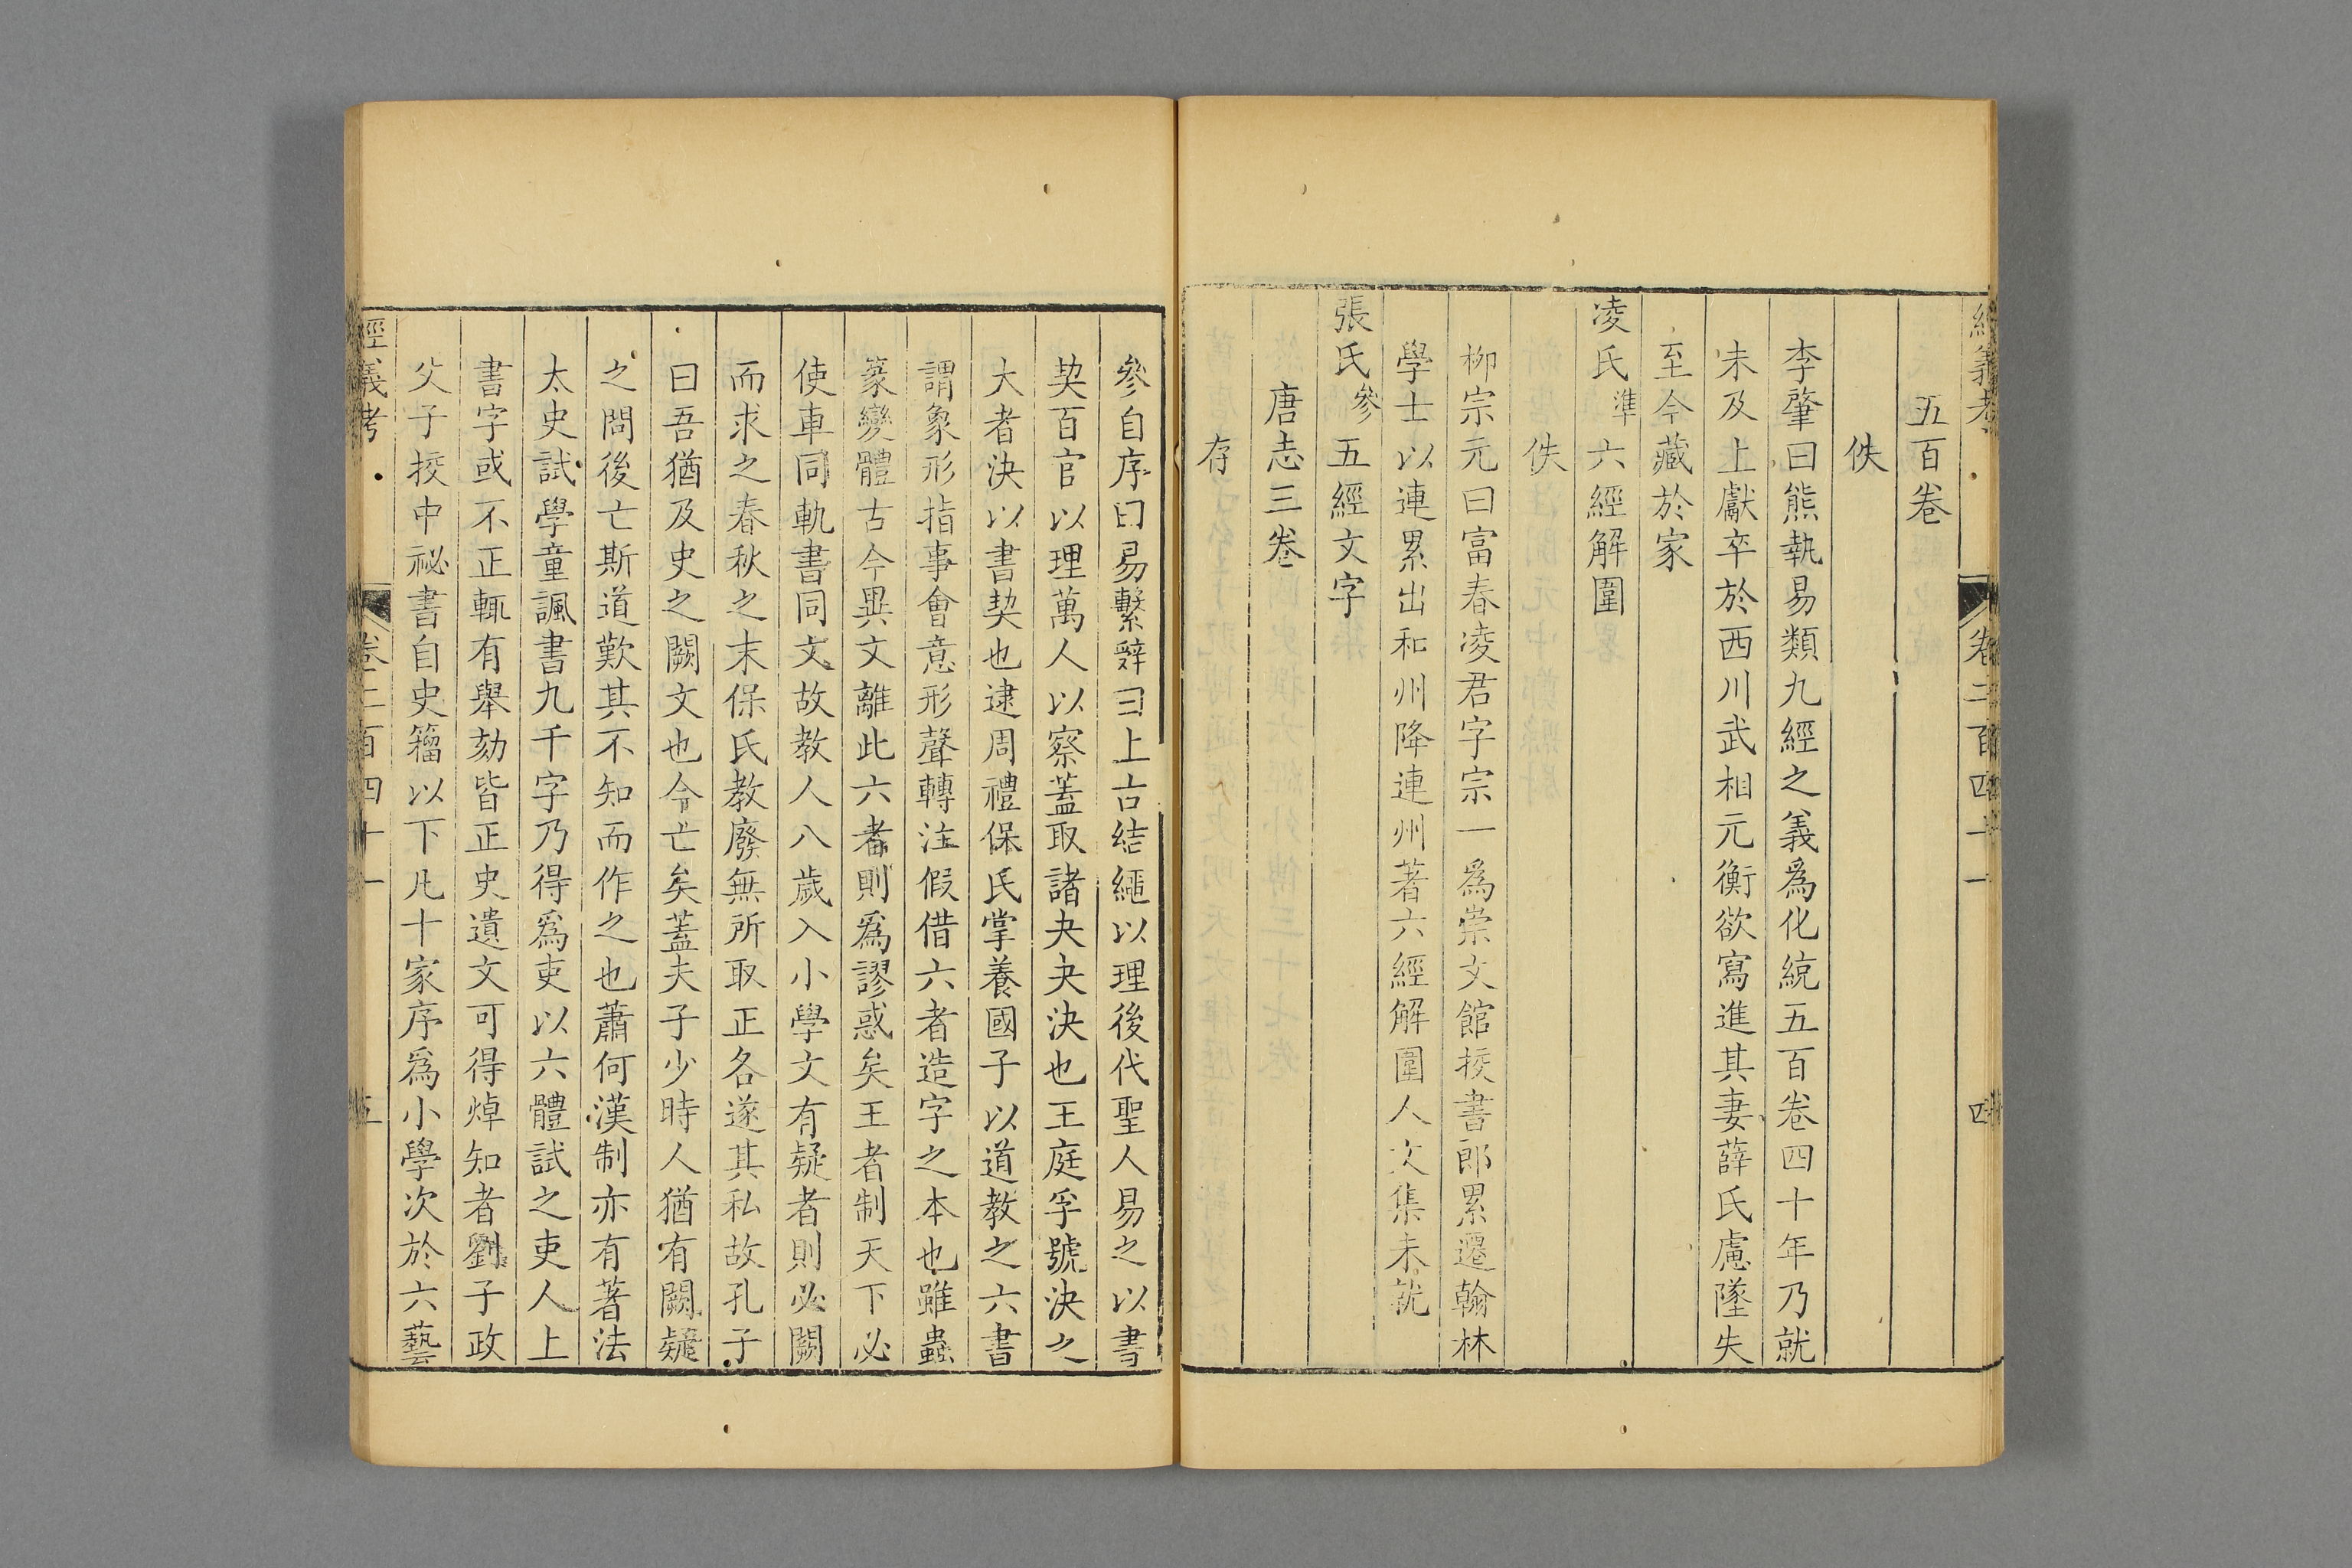 經義考 卷二百四十一 四
五百卷
佚
李肇曰熊執易類九經之義爲化統五百卷四十年乃就
未及上獻卒於西川武相元衡欲寫進其妻薛氏慮墜失
至今藏於家
凌氏準六經解圍
佚
柳宗元曰富春凌君字宗一爲崇文館挍書郎累遷翰林
學士以連累出和州降連州著六經解圍人文集未就
張氏參五經文字
唐志三卷
存
參自序曰易繫辭曰上古結繩以理後代聖人易之以書
契百官以理萬人以察蓋取諸夬夬決也王庭孚號決之
大者決以書契也逮周禮保氏掌養國子以道教之六書
謂象形指事會意形聲轉注假借六者造字之本也雖蟲
篆變體古今異文離此六者則爲謬惑矣王者制天下必
使車同軌書同文故教人八歲入小學文有疑者則必闕
而求之春秋之末保氏教廢無所取正各遂其私故孔子
曰吾猶及史之闕文也今亡矣蓋夫子少時人猶有闕疑
之問後亡斯道歎其不知而作之也蕭何漢制亦有著法
太史試學童諷書九千字乃得爲吏以六體試之吏人上
書字或不正輒有舉劾皆正史遺文可得焯知者劉子政
父子挍中祕書自史籀以下凡十家序爲小學次於六藝
經義考 卷二百四十一 五